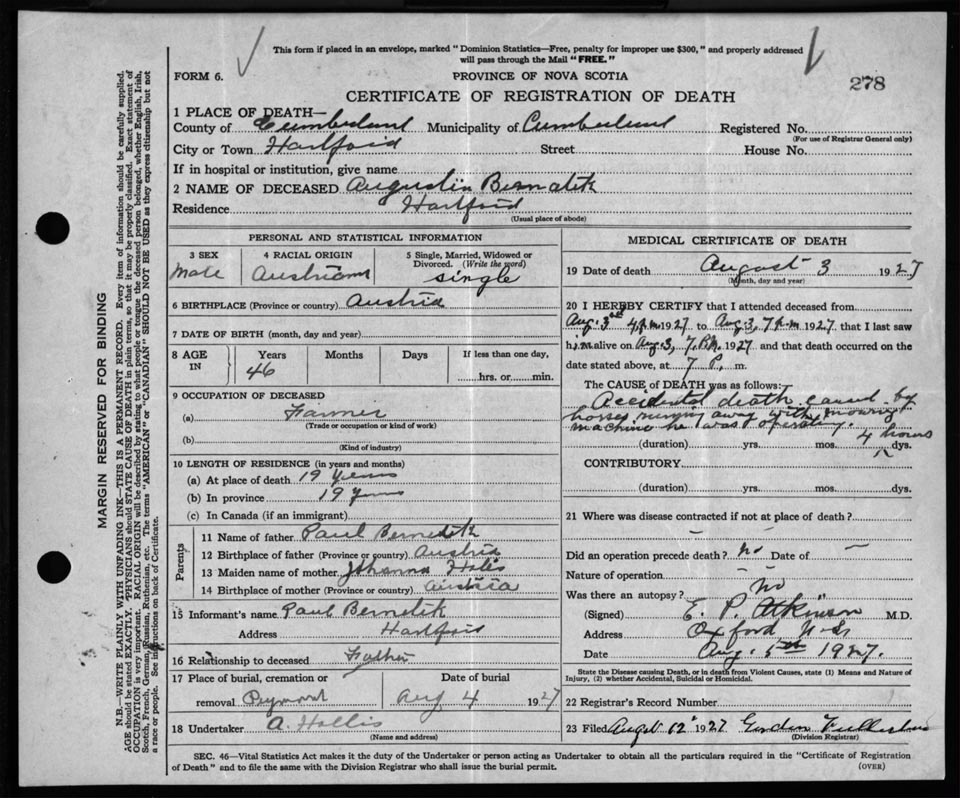 This form if placed in an envelope, marked "Dominion Statistics—Free, penalty for improper use $300," and properly addressed
will pass through the Mail "FREE."
FORM 6.
PROVINCE OF NOVA SCOTIA
278
CERTIFICATE OF REGISTRATION OF DEATH
1 PLACE OF DEATH—
County of Cumberland Municipality of Cumberland Registered No.
(For use of Registrar General only)
City or Town Hartford Street House No.
If in hospital or institution, give name
2 NAME OF DECEASED Augustin
Residence Hartford
(Usual place of abode)
PERSONAL AND STATISTICAL INFORMATION
3 SEX 4 RACIAL ORIGIN 5 Single, Married, Widowed or
Divorced. (Write the word)
Male Austrian single
6 BIRTHPLACE (Province or country) Austria
7 DATE OF BIRTH (month, day and year)
8 AGE IN Years Months Days If less than one day,
46 hrs. or min.
9 OCCUPATION OF DECEASED
(a) Farmer
(Trade or occupation or kind of work)
(b)
(Kind of industry)
10 LENGTH OF RESIDENCE (in years and months)
(a) At place of death 19 years
(b) In province 19 years
(c) In Canada (if an immigrant)
Parents
11 Name of father Paul
12 Birthplace of father (Province or country) Austria
13 Maiden name of mother Johanna
14 Birthplace of mother (Province or country) Austria
15 Informant's name Paul
Address Hartford
16 Relationship to deceased Father
17 Place of burial, cremation or Date of burial
removal Aug 4 1927
18 Undertaker A. Hollis
(Name and address)
MEDICAL CERTIFICATE OF DEATH
19 Date of death August 3 1927
(Month, day and year)
20 I HEREBY CERTIFY that I attended deceased from
Aug. 3rd 4 p.m 1927 to Aug 3, 7 p.m 1927 that I last saw
him alive on Aug 3, 7. P.M. 1927 and that death occurred on the
date stated above, at 7 P. m.
The CAUSE of DEATH was as follows:
Accidental death caused by
horses running away with mowing
machine he was operating.
4 hours
(duration) yrs. mos. dys.
CONTRIBUTORY
(duration) yrs. mos. dys.
21 Where was disease contracted if not at place of death?
Did an operation precede death? no Date of —
Nature of operation
Was there an autopsy? No
(Signed) E. P. Atkinson M.D.
Address Oxford N.S.
Date Aug. 5th 1927.
State the Disease causing Death, or in death from Violent Causes, state (1) Means and Nature of
Injury, (2) whether Accidental, Suicidal or Homicidal.
22 Registrar's Record Number
23 Filed August 12 1927
(Division Registrar)
SEC. 46—Vital Statistics Act makes it the duty of the Undertaker or person acting as Undertaker to obtain all the particulars required in the "Certificate of Registration
of Death" and to file the same with the Division Registrar who shall issue the burial permit. (OVER)
MARGIN RESERVED FOR BINDING
N.B.—WRITE PLAINLY WITH UNFADING INK—THIS IS A PERMANENT RECORD. Every item of information should be carefully supplied.
AGE should be stated EXACTLY. PHYSICIANS should STATE CAUSE OF DEATH in plain terms, so that it may be properly classified. Exact statement of
OCCUPATION is very important. RACIAL ORIGIN will be described by stating to what people or tongue the deceased person belonged, whether English, Irish,
Scotch, French, German, Russian, Ruthenian, etc. The terms "AMERICAN" or "CANADIAN" SHOULD NOT BE USED as they express citizenship but not
a race or people. See instructions on back of Certificate.